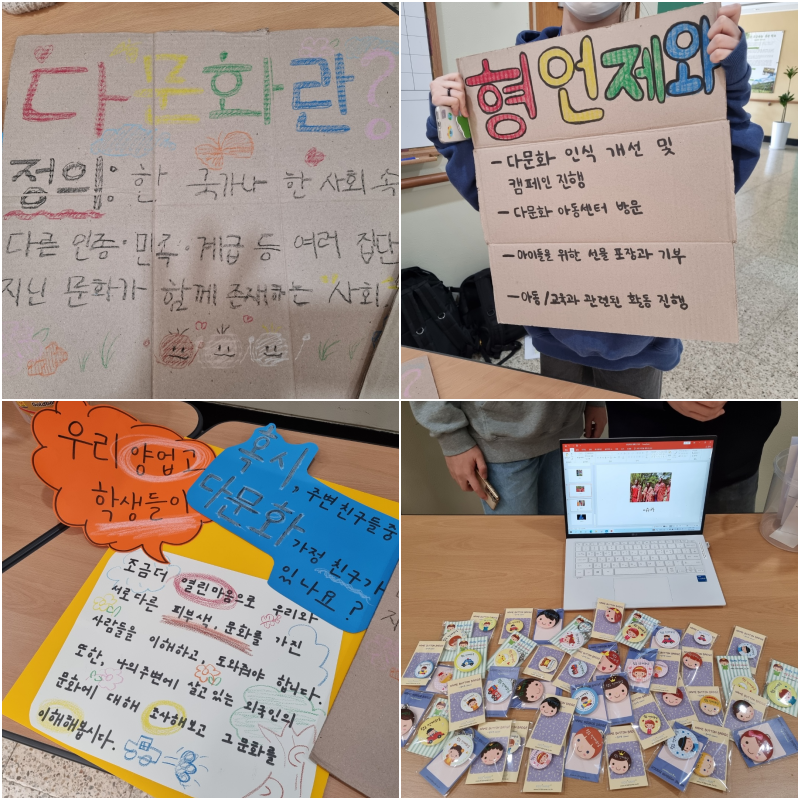 다문화란?
정의: 한 국가나 한 사회 속
다른 인종·민족·계급 등 여러 집단
지닌 문화가 함께 존재하는 "사회
형언제와
- 다문화 인식 개선 및
캠페인 진행
- 다문화 아동센터 방문
- 아이들을 위한 선물 포장과 기부
- 아동/교육과 관련된 활동 진행
우리 양업고
학생들이
혹시, 주변 친구들중
다문화 가정 친구가
있나요?
조금더 열린마음으로 우리와
서로 다른 피부색, 문화를 가진
사람들을 이해하고, 도와줘야 합니다.
또한, 나의주변에 살고있는 외국인의
문화에 대해 조사해보고 그 문화를
이해해봅시다.